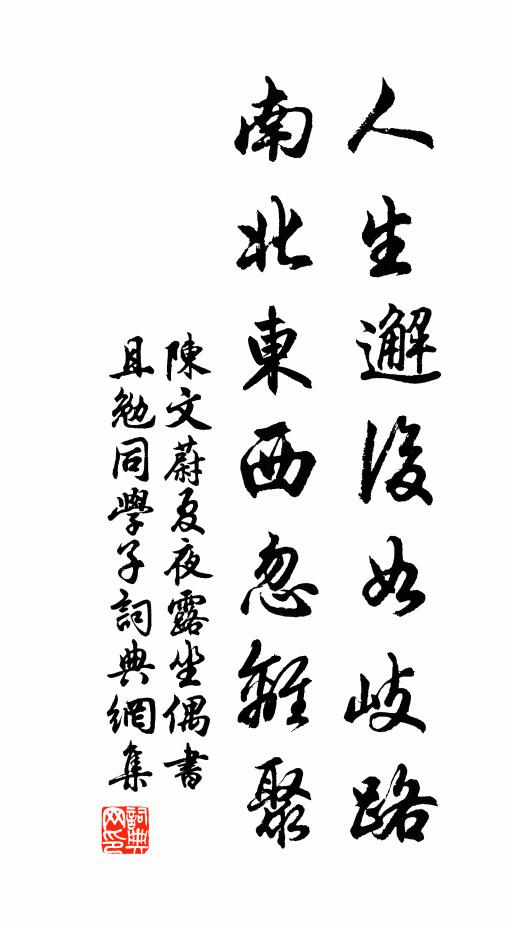 人生邂後如岐路
南北東西忽離聚
陳文蔚夏夜露坐偶書
且勉同學子詞典網集
詞典
网印